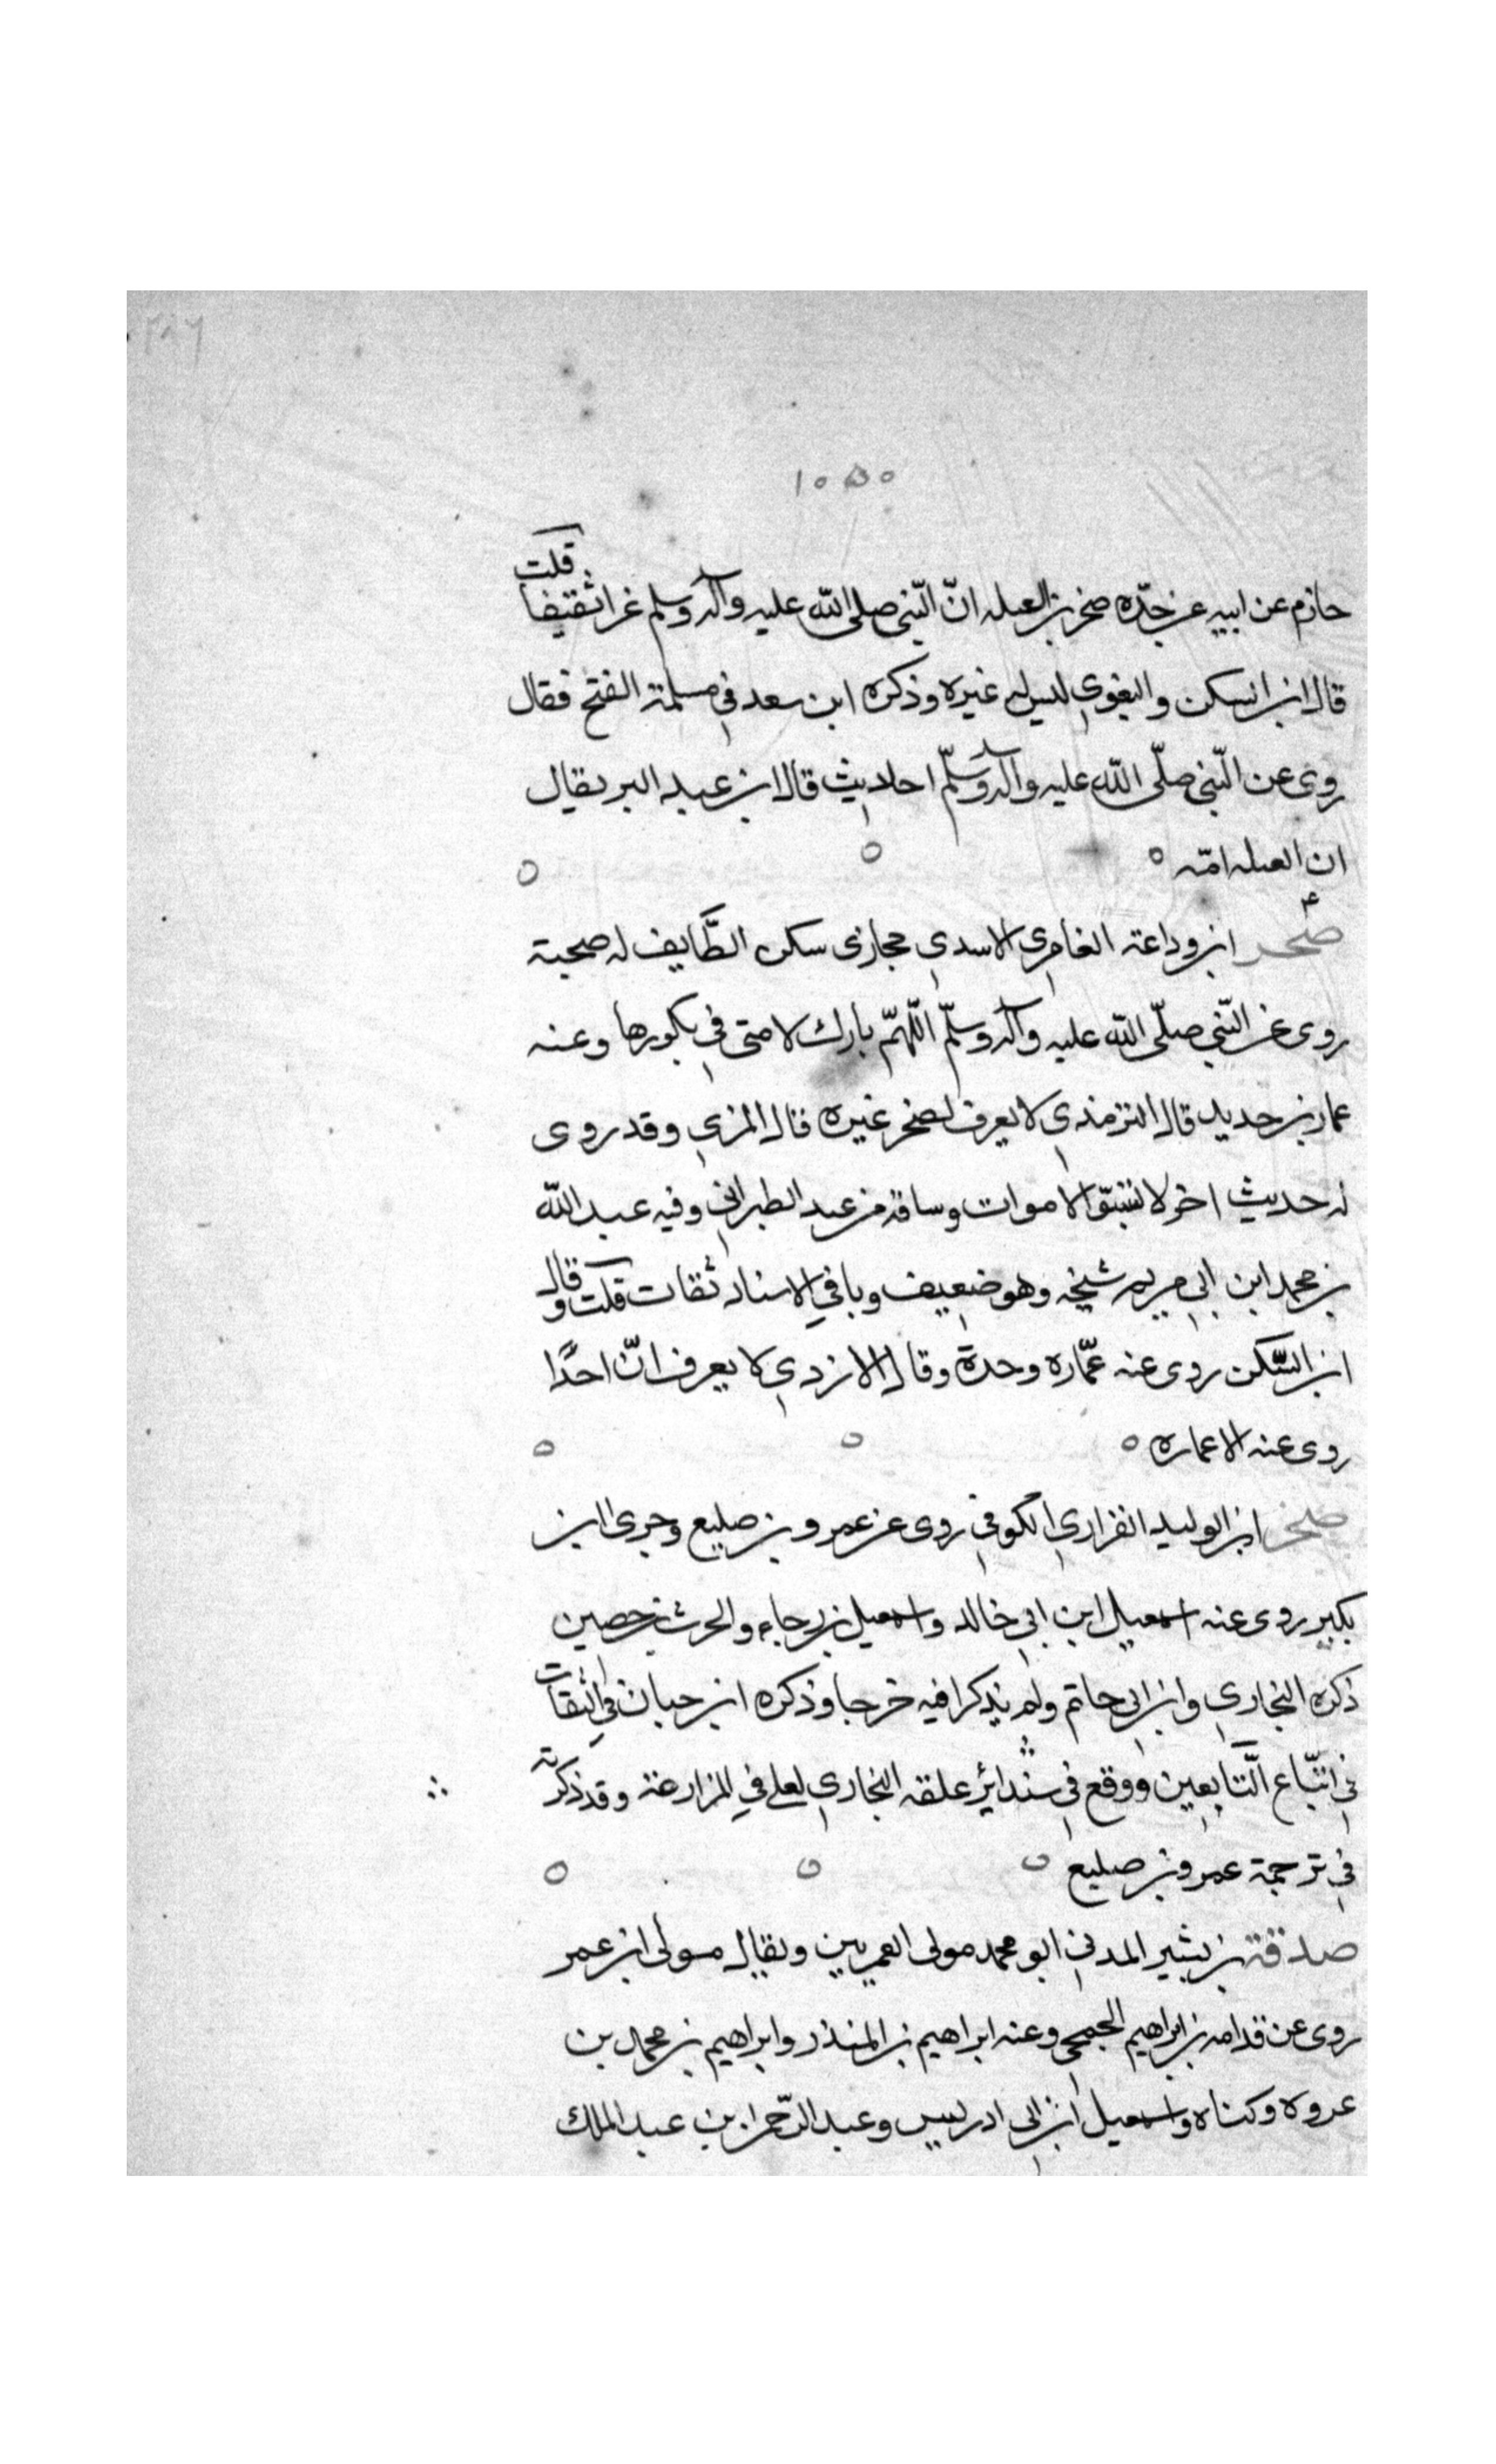 ١٠٥٥
حازم عن ابيه عن جدّه صخر بن العيله انّ النّبى صلى الله عليه وآله وسلم غزا ثقيفا قلت
قال ابن السكن والبغوي ليس له غيره وذكره ابن سعد في مسلمة الفتح فقال
روى عن النّبي صلّى الله عليه وآله وسلّم احاديث قال ابن عبد البر يقال
ان العيله امّه
صخر ٤ ابن وداعة الغامري الاسدي حجازى سكن الطّايف له صحبة
روى عن النّبي صلّى الله عليه وآله وسلّم اللّهمّ بارك لامتى في بكورها وعنه
عمار بن حديد قال الترمذي لا يعرف لصخر غيره قال المزي وقد روى
له حديث اخر لا تسبوّا الاموات وساقه من عند الطبراني وفيه عبد الله
بن محمد ابن ابي مريم شيخه وهو ضعيف وباقي الاسناد ثقات قلت وقال
ابن السّكن روى عنه عمّاره وحدة وقال الازدي لا يعرف انّ احدًا
روى عنه الا عماره
صخر ابن الوليد الفزاري الكوفي روى عن عمرو بن صليع وجرى ابن
بكير روى عنه اسمعيل ابن ابي خالد واسمعيل بن رجاء والحرث بن حصين
ذكره البخاري وابن ابي حاتم ولم يذكرا فيه خرجا وذكره ابن حبان في الثقات
في اتبّاع التّابعين ووقع في سند اثر علقه البخاري لعلي في المزارعة وقد ذكرته
في ترجمة عمرو بن صليع
صدقة بن بشير المدني ابو محمد مولى العمريين ويقال مولى ابن عمر
روى عن قدامه بن ابراهيم الجمحي وعنه ابراهيم بن المنذر وابراهيم بن محمد بن
عروه وكناه واسمعيل ابن ابي ادريس وعبد الرّحمن بن عبد الملك